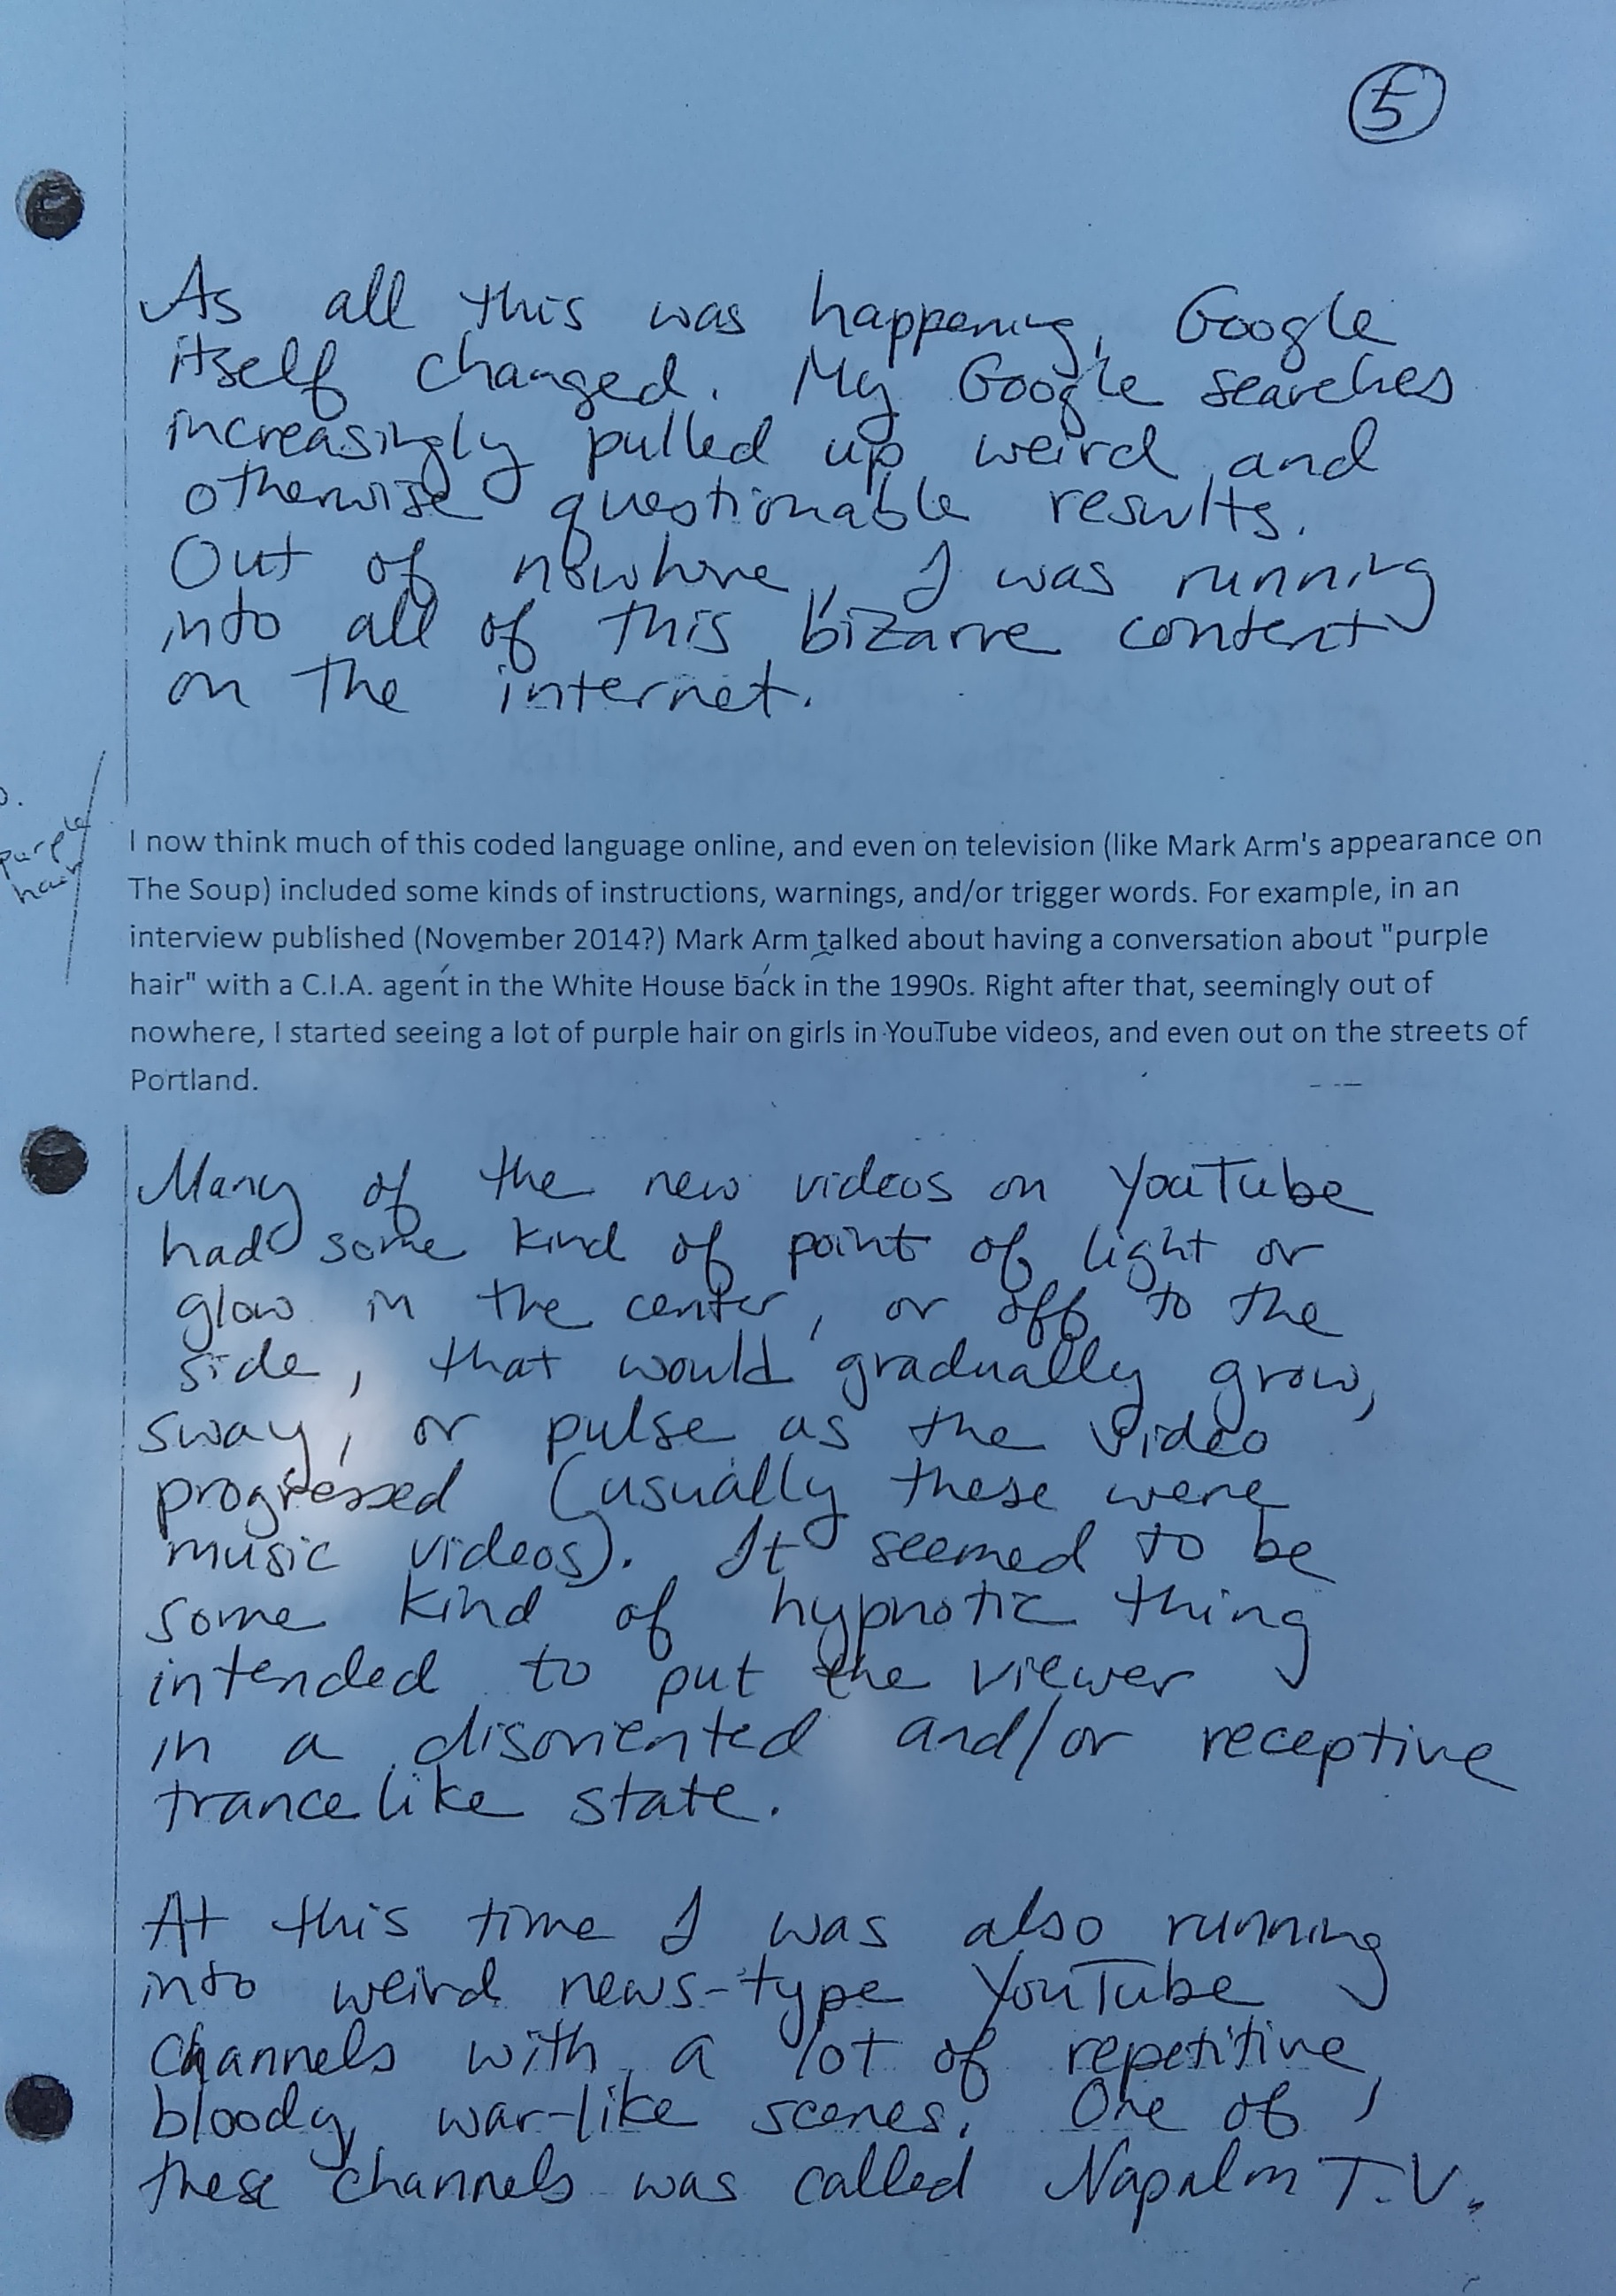 5
As all this was happening, Google
itself changed. My Google searches
increasingly pulled up weird and
otherwise questionable results.
Out of nowhere, I was running
into all of this bizarre content
on the internet.
purple
hair
I now think much of this coded language online, and even on television (like Mark Arm's appearance on
The Soup) included some kinds of instructions, warnings, and/or trigger words. For example, in an
interview published (November 2014?) Mark Arm talked about having a conversation about "purple
hair" with a C.I.A. agent in the White House back in the 1990s. Right after that, seemingly out of
nowhere, I started seeing a lot of purple hair on girls in YouTube videos, and even out on the streets of
Portland.
Many of the new videos on YouTube
had some kind of point of light or
glow in the center, or off to the
side, that would gradually grow,
sway, or pulse as the video
progressed (usually these were
music videos). It seemed to be
some kind of hypnotic thing
intended to put the viewer
in a disoriented and/or receptive
trancelike state.
At this time I was also running
into weird news-type YouTube
channels with a lot of repetitive,
bloody, war-like scenes. One of
these channels was called Napalm T.V.